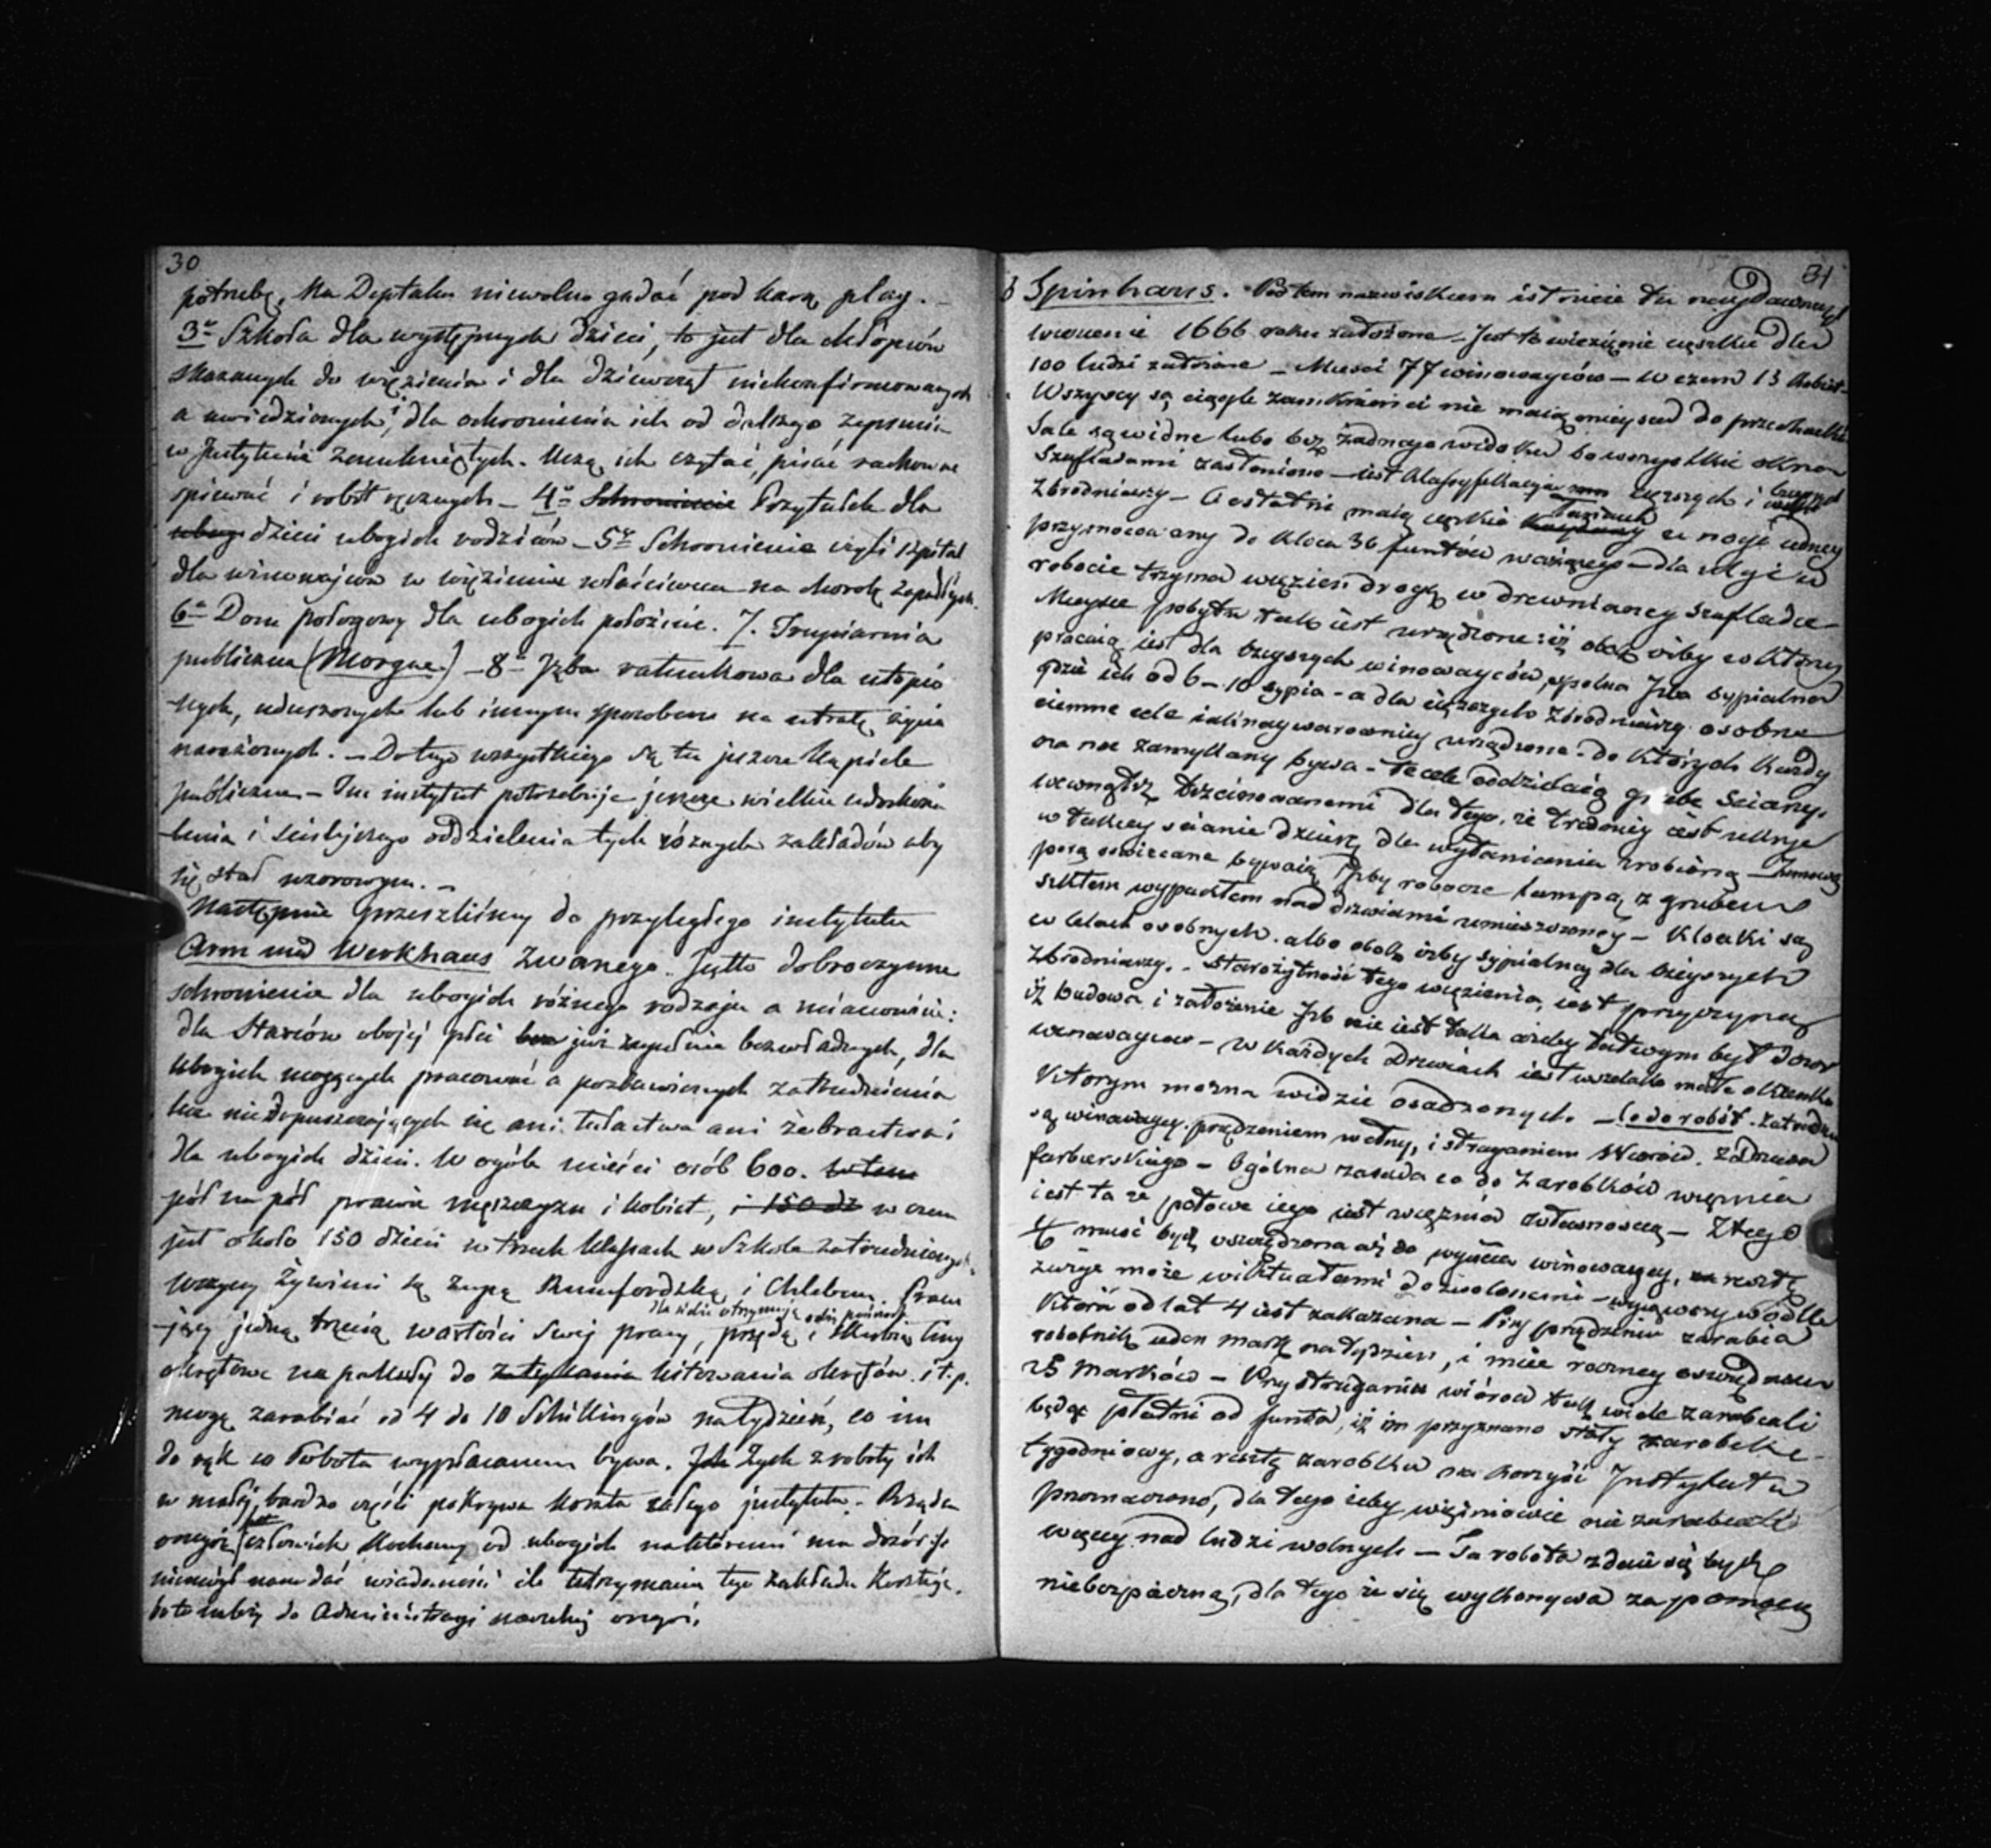 30
potrzebę. Na Deptaku niewolno gadać pod karą plag. –
3º Szkoła dla występnych dzieci, to jest dla chłopców
skazanych do więzienia i dla dziewcząt niekonfirmowanych
a uwiedzionych, dla ochronienia ich od dalszego zepsucia
w Instytucie zamkniętych. Uczą ich czytać, pisać, rachować
spiewać i robót ręcznych – 4º Schronienie Przytułek dla
ubog dzieci ubogich rodziców – 5º Schronienie czyli szpital
dla winowajców w więzieniu właściwem na chorobę zapadłych.
6º Dom połogowy dla ubogich położnic. 7. Trupiarnia
publiczna (Morgue) – 8º Izba ratunkowa dla utopio
nych, uduszonych lub innym sposobem na utratę życia
narażonych. – Do tego wszystkiego są tu jeszcze kąpiele
publiczne – Ten instytut potrzebuje jeszcze wielkie udoskona
lenia i ściślejszego oddzielenia tych róznych zakładów aby
się stał wzorowym. –
Następnie przeszliśmy do przyległego instytutu
Arm und Werkhaus zwanego. Jestto dobroczynne
schronienie dla ubogich różnego rodzaju a mianowicie:
dla Starców obojej płci już zupełnie bezwładnych, dla
ubogich mogących pracować a pozbawionych zatrudnienia
lecz niedopuszczających się ani tułactwa ani żebractwa i
dla ubogich dzieci. W ogóle mieści osób 600. w tem
pół na pół prawie męszczyzn i kobiet, i 150 dz w czem
jest około 150 dzieci w trzech klassach w Szkole zatrudnionych.
Wszyscy żywieni są zupą Rumfordzką i Chlebem. Pracu
dla siebie otrzymują
jący jedną trzecią wartości swej pracy, przędą i skubią liny
okrętowe na pakuły do zatykania kitowania okrętów. i t. p.
mogą zarabiać od 4 do 10 Schillingów na tydzień, co im
do rąk w Sobotę wypłacanem bywa. Zysk z roboty ich
w małej bardzo części pokrywa koszta całego instytutu. Rządca
onegóż człowiek kochany od ubogich nad któremi ma dozór
niemógł nam dać wiadomości ile utrzymanie tego zakładu kosztuje.
bo to należy do Administracyi naczelnej onegoż.
31
Spinhaus. Pod tem nazwiskiem istnieie tu naydawniejsze
więzienie 1666 roku założone – Jest to więzienie ciężkie dla
100 ludzi założone – Mieści 77 winowayców – W czem 13 kobiet –
Wszyscy są ciągle zamknięci nie maią mieysca do przechadzki
Sale są widne lubo bez żadnego widoku bo wszystkie okna
szufladami zasłonione – iest klassyfikacyia cięższych i
zbrodniarzy – Ci ostatni maią ciężkie Kaydany u nogi iedney
przymocowany do kloca 36 funtów ważącego – dla ulgi w
robocie trzyma więzień drogę w drewnianey szufladce
Mieysce pobytu tak iest urządzone: iż obok izby w którey
pracuią iest dla lżeyszych winowayców, spólna Izba sypialna
gdzie ich od 6 – 10 sypia – a dla cięższych zbrodniarzy osobne
ciemne cele iaknaywarowniey urządzone – do których każdy
na noc zamykany bywa – te cele oddzielaią grube ściany,
wewnątrz trzcinowanemi dla tego, że trudniey iest ukryć
w takiey scianie dziurę dla wyłamania zrobioną – Zimową
porą oswiecane bywaią Izby robocze lampą z grubem
szkłem wypukłem nad drzwiami umieszczoney – Kloaki są
w celach osobnych albo obok izby sypialney dla lżeyszych
zbrodniarzy. – Starożytność tego więzienia, iest przyczyną
iż budowa i założenie Izb nie iest taka ażeby łatwym był dozór
winowayców – w każdych Drzwiach iest wszelako małe okienko
którym można widzieć osadzonych. – Co do robót. Zatrudn
są winowaycy przędzeniem wełny, i struganiem Wiorów z Drzewa
farbierskiego – Ogólna zasada co do zarobków więźnia
iest ta że połowa iego iest więźnia własnością – Z tey
¼ musi być oszczędzona aż do wyiścia winowaycy, resztę
zużyć może wiktuałami dozwolonemi – wyiąwszy wódkę
która od lat 4 iest zakazana – Przy przędzeniu zarabia
robotnik ieden mark na tydzień, i miee roczney oszczędności
25 Marków – Przy struganiu wiórów tak wiele zarabiali
będąc płatni od funta, iż im przyznano stały zarobek
tygodniowy, a resztę zarobku na korzyść Instytutu
przeznaczono, dla tego żeby więźniowie nie zarabiali
więcey nad ludzi wolnych – Ta robota zdaie się być
niebezpieczną, dla tego że się wykonywa za pomocą